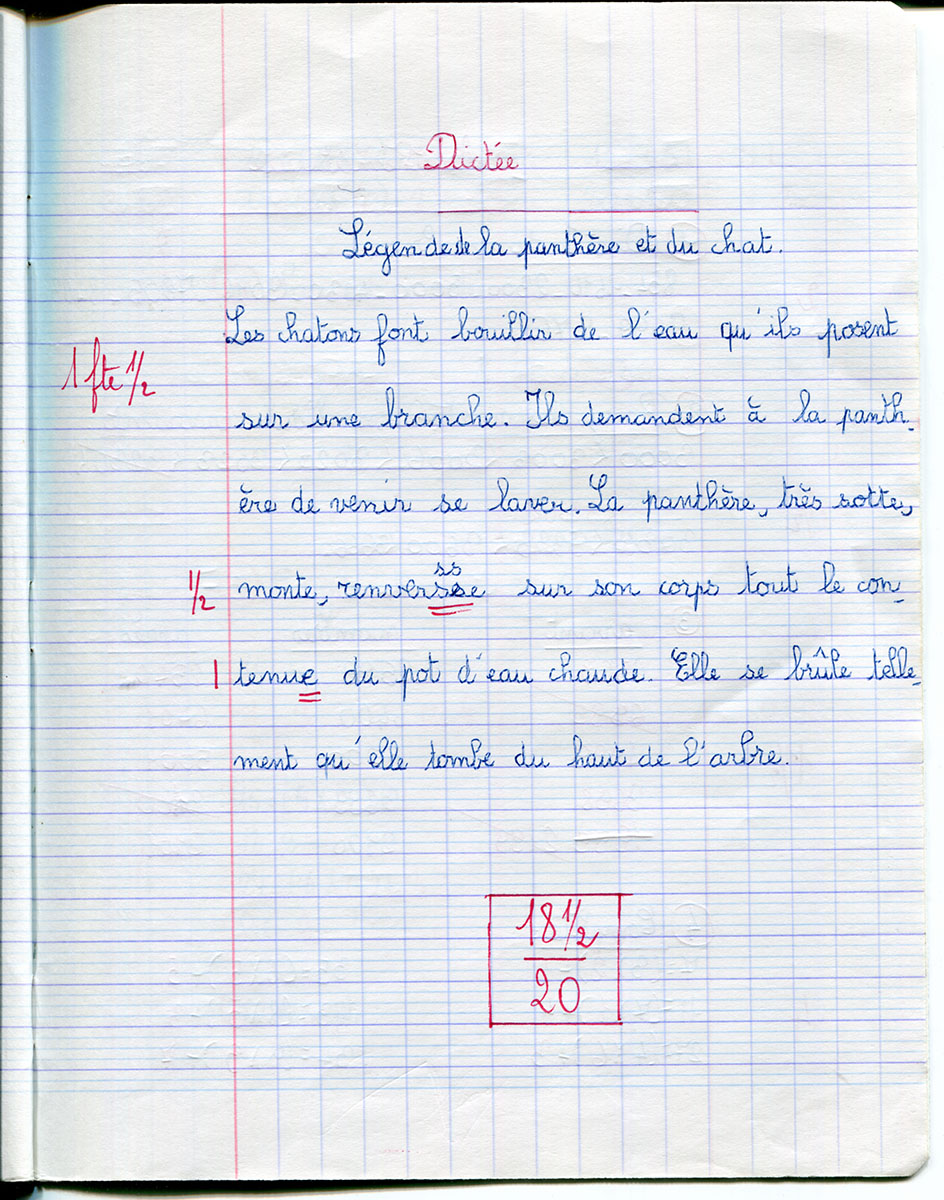 Dictée
Légende de la panthère et du chat.
Les chatons font bouillir de l'eau qu'ils posent
1 fte 1/2
sur une branche. Ils demandent à la panth-
ère de venir se laver. La panthère, très sotte,
ss
1/2 monte, renversse sur son corps tout le con-
1 tenue du pot d'eau chaude. Elle se brûle telle-
ment qu'elle tombe du haut de l'arbre.
18 1/2
20